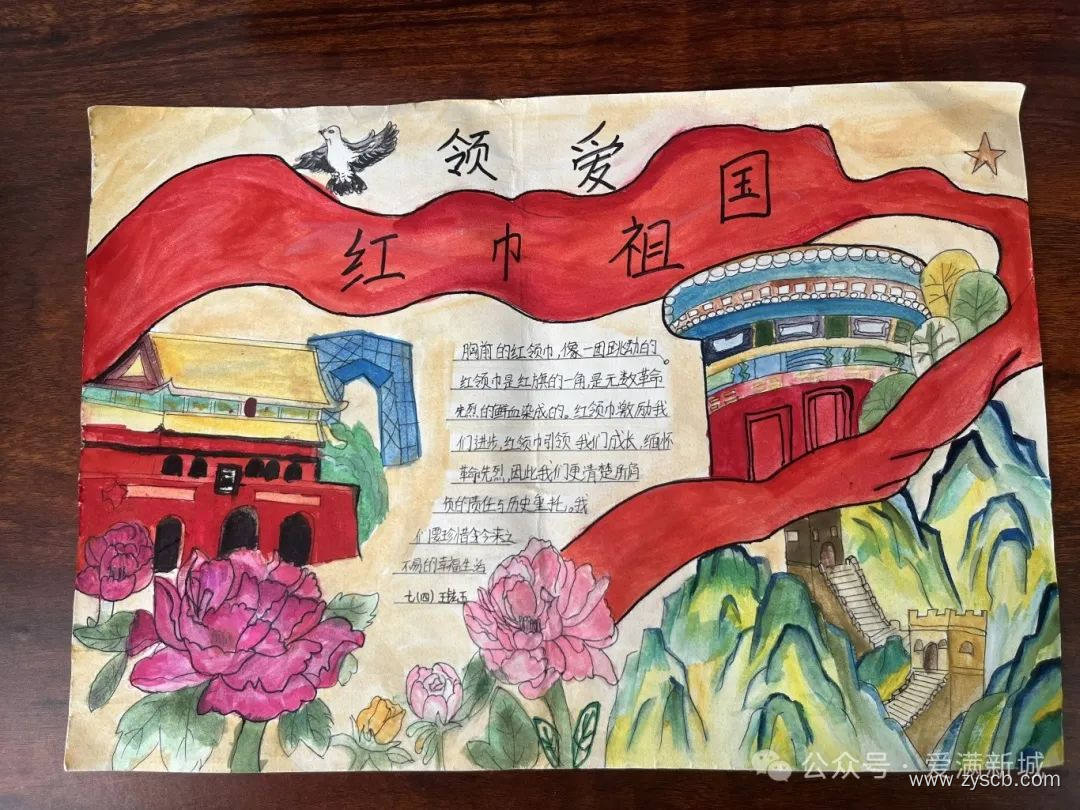 红领巾爱祖国
胸前的红领巾，像一团跳动的。
红领巾是红旗的一角是无数革命
先烈的鲜血染成的。红领巾激励我
们进步，红领巾引领我们成长，缅怀
革命先烈，因此我们更清楚所肩
负的责任与历史重托。我
们要珍惜今来之
不易的幸福生活
七(四) 王
公众号·爱满新城
www.zyscb.com